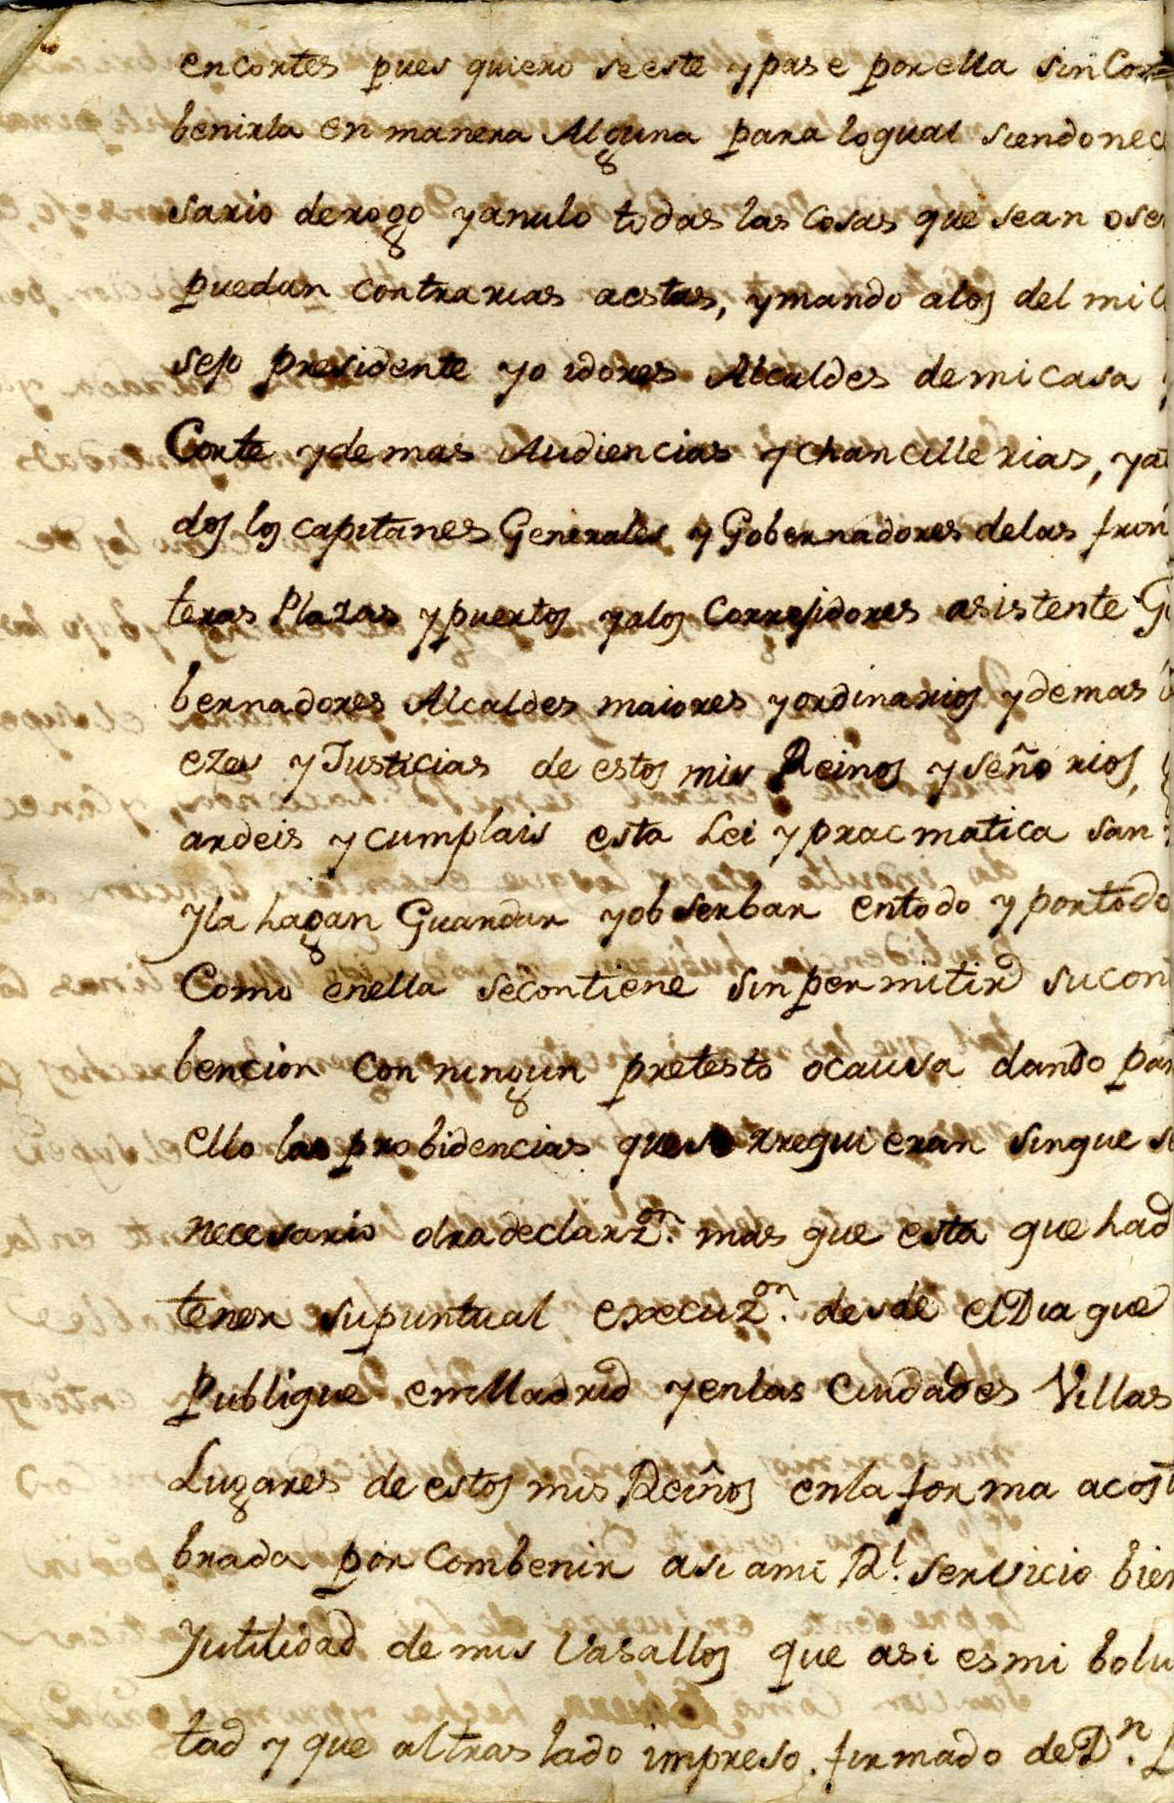 encortes pues quiero seeste ypase porella sin Cont
benirla en manera Alguna para loqual siendonec
sario derogo yanulo todas las Cosas que sean ose
puedan contrarias aestas, ymando alos del mi C
sejo presidente yo idores Alcaldes demicasa y
Corte ydemas Audiencias ychancillerias, ya
dos los capitanes Generales y Gobernadores delas fron
teras Plazas ypuertos yalos Correjidores asistente G
bernadores Alcaldes maiores yordinarios ydemas
ezes y Justicias de estos mis Reinos y señorios,
ardeis ycumplais esta Lei ypracmatica san
Yla hagan Guardar yobserbar entodo y portodo
Como enella secontiene sinpermitir sucon
bencion Con ningun pretesto ocausa dando par
ello las probidencias que se rrequieran sinque se
necesario otradeclarzon. mas que esta que had
tener supuntual execuzon. desde elDia que
Publique enMadrid yenlas Ciudades Villas
Lugares de estos mis Reinos enla forma acost
brada por Combenir asi ami Rl. servicio bien
Yutilidad de mis Vasallos que asi esmi bolu
tad y que altraslado impreso. firmado de Dn.